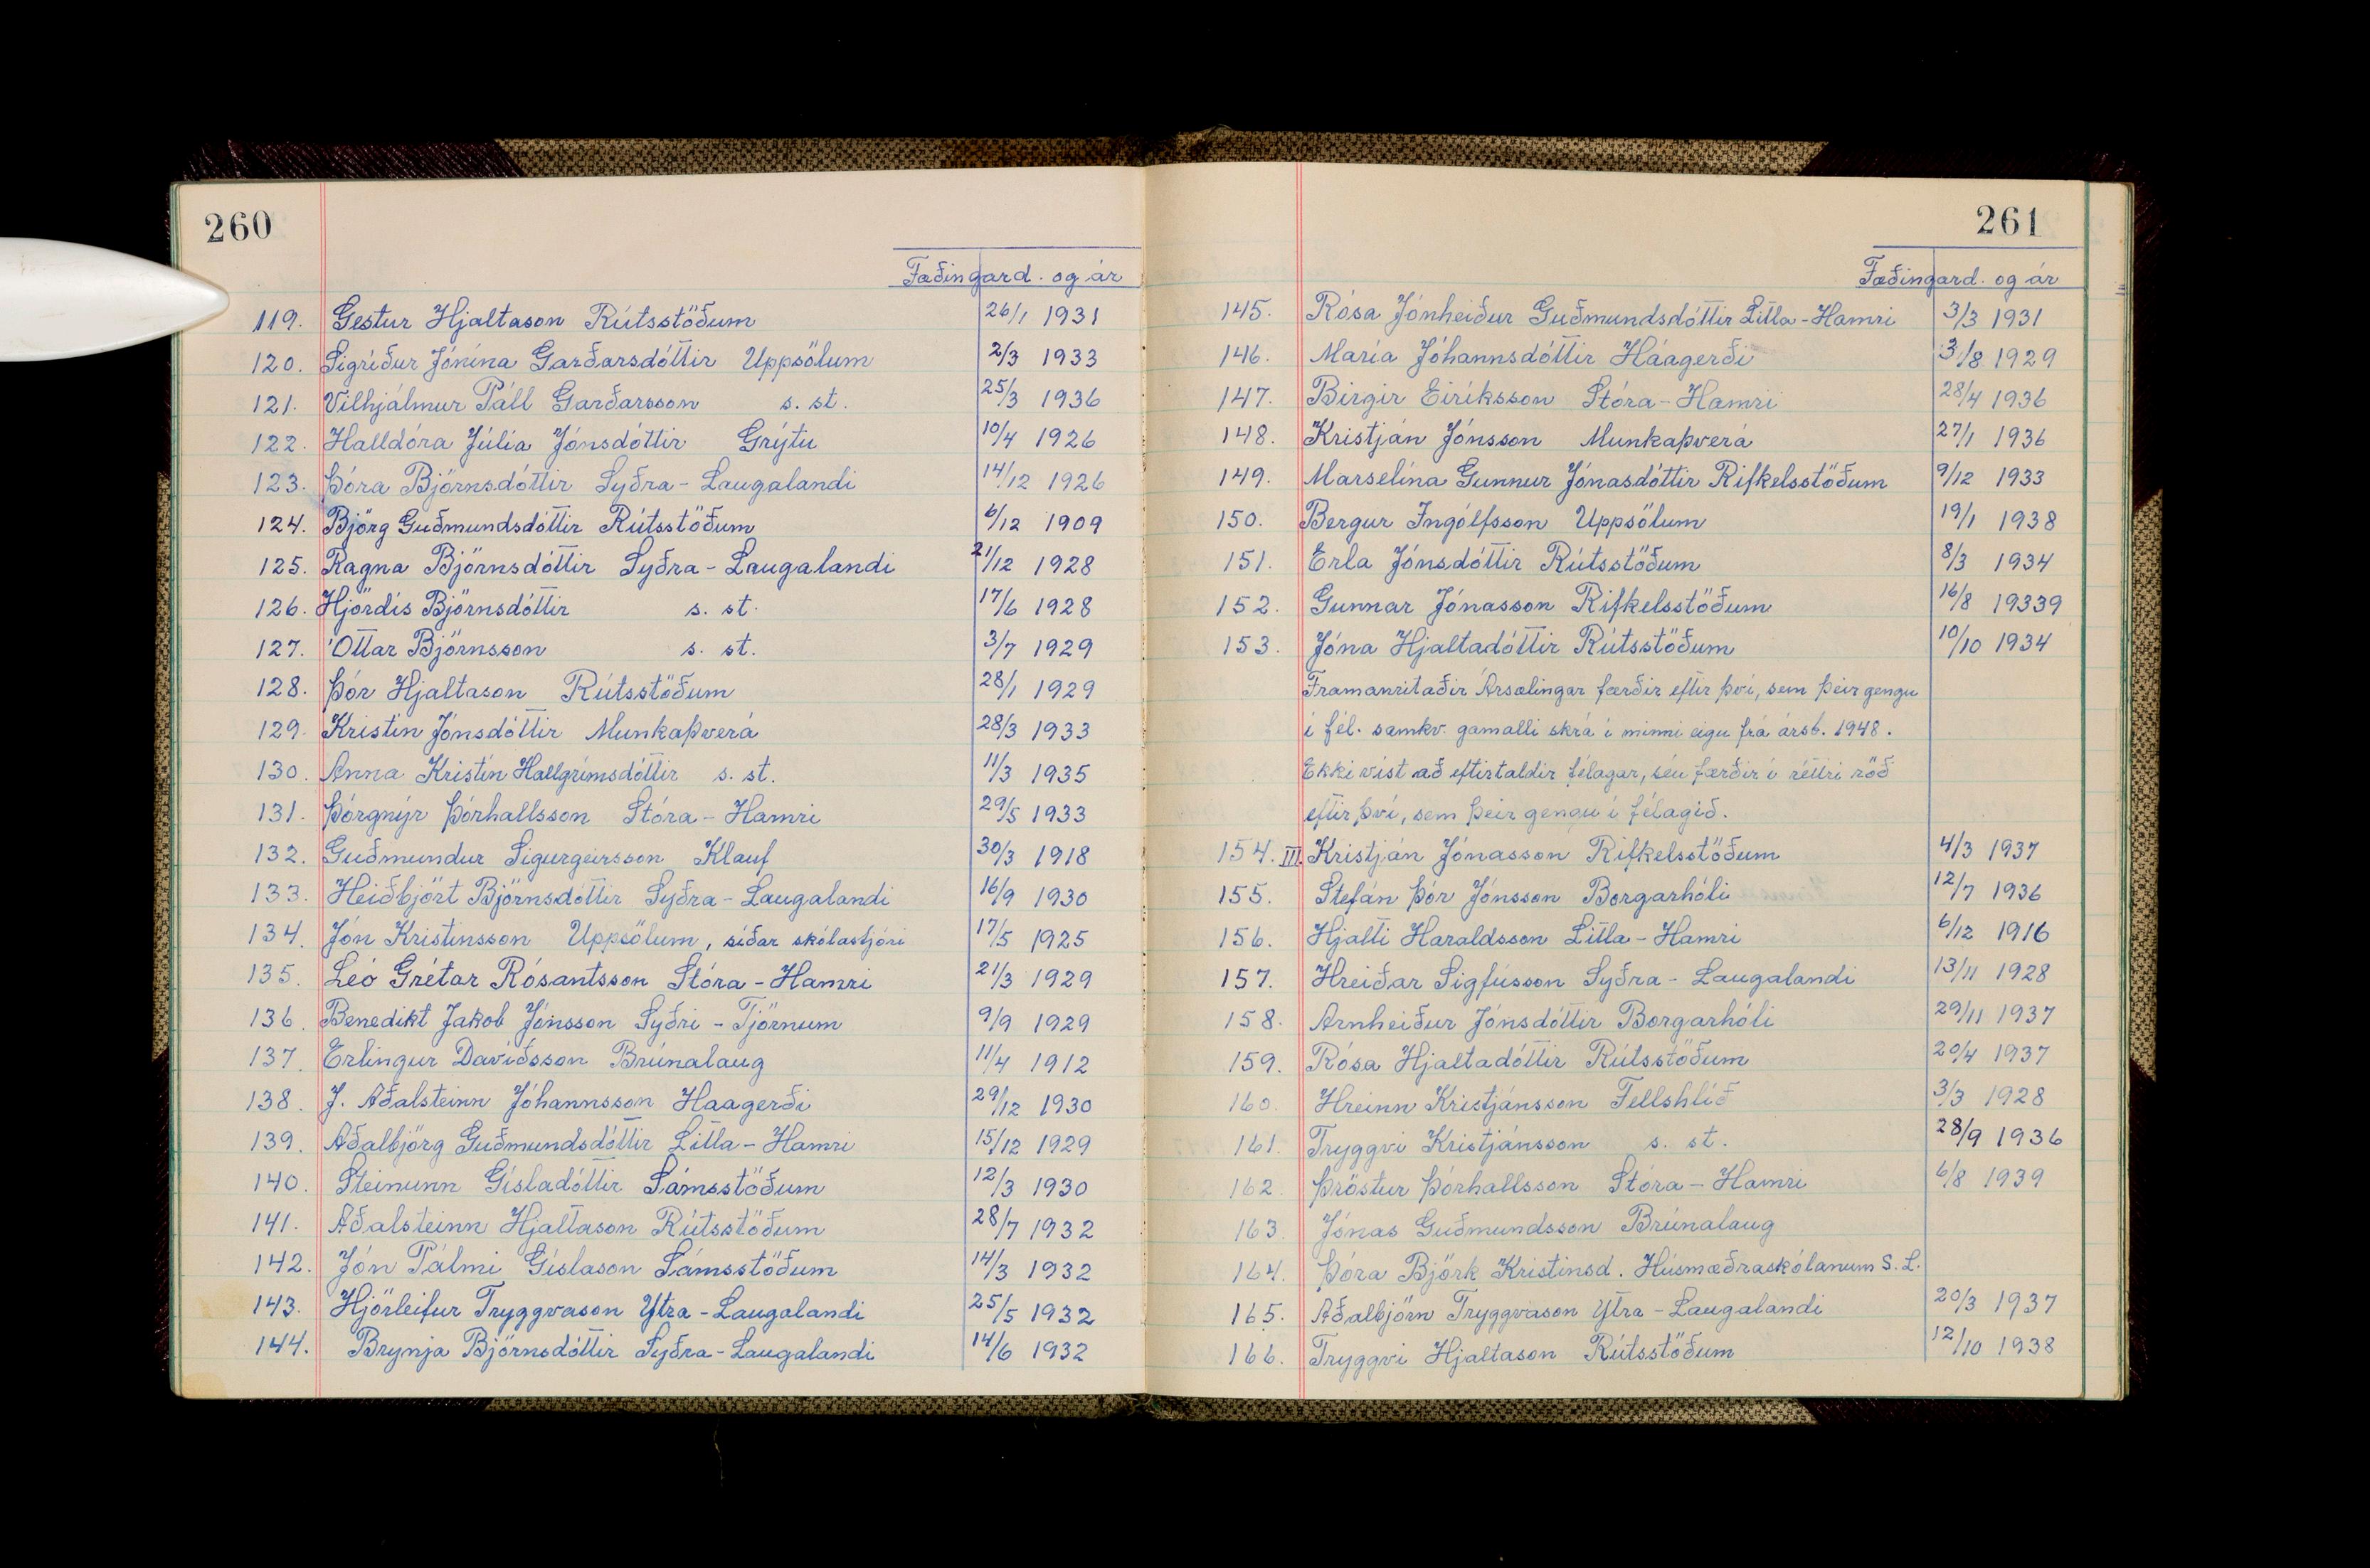 260
Fæðingard. og ár
119. Gestur Hjaltason Rútsstöðum 26/1 1931
120. Sigríður Jónína Garðarsdóttir Uppsölum 2/3 1933
121. Vilhjálmur Páll Garðarsson s. st. 25/3 1936
122. Halldóra Júlía Jónsdóttir Grýtu 10/4 1926
123. Þóra Björnsdóttir Syðra-Laugalandi 14/12 1926
124. Björg Guðmundsdóttir Rútsstöðum 6/12 1909
125. Ragna Björnsdóttir Syðra-Laugalandi 21/12 1928
126. Hjördís Björnsdóttir s. st. 17/6 1928
127. Óttar Björnsson s. st. 3/7 1929
128. Þór Hjaltason Rútsstöðum 28/1 1929
129. Kristín Jónsdóttir Munkaþverá 28/3 1933
130. Anna Kristín Hallgrímsdóttir s. st. 11/3 1935
131. Þórgnýr Þórhallsson Stóra-Hamri 29/5 1933
132. Guðmundur Sigurgeirsson Klauf 30/3 1918
133. Heiðbjört Björnsdóttir Syðra-Laugalandi 16/9 1930
134. Jón Kristinsson Uppsölum, síðar skólastjóri 17/5 1925
135. Léo Grétar Rósantsson Stóra-Hamri 21/3 1929
136. Benedikt Jakob Jónsson Syðri-Tjörnum 9/9 1929
137. Erlingur Davíðsson Brúnalaug 11/4 1912
138. J. Aðalsteinn Jóhannsson Haagerði 29/12 1930
139. Aðalbjörg Guðmundsdóttir Litla-Hamri 15/12 1929
140. Steinunn Gísladóttir Sámsstöðum 12/3 1930
141. Aðalsteinn Hjaltason Rútsstöðum 28/7 1932
142. Jón Pálmi Gíslason Sámsstöðum 14/3 1932
143. Hjörleifur Tryggvason Ytra-Laugalandi 25/5 1932
144. Brynja Björnsdóttir Syðra-Laugalandi 14/6 1932
261
Fæðingard. og ár
145. Rósa Jónheiður Guðmundsdóttir Litla-Hamri 3/3 1931
146. María Jóhannsdóttir Háagerði 3/8 1929
147. Birgir Eiríksson Stóra-Hamri 28/4 1936
148. Kristján Jónsson Munkaþverá 27/1 1936
149. Marselína Gunnur Jónasdóttir Rifkelsstöðum 9/12 1933
150. Bergur Ingólfsson Uppsölum 19/1 1938
151. Erla Jónsdóttir Rútsstöðum 8/3 1934
152. Gunnar Jónasson Rifkelsstöðum 16/8 19339
153. Jóna Hjaltadóttir Rútsstöðum 10/10 1934
Framanritaðir Ársælingar færðir eftir því, sem þeir gengu
í fél. samkv. gamalli skrá í minni eigu frá ársb. 1948.
Ekki víst að eftirtaldir félagar, séu færðir í réttri röð
eftir því, sem þeir gengu í félagið.
154. III. Kristján Jónasson Rifkelsstöðum 4/3 1937
155. Stefán Þór Jónsson Borgarhóli 12/7 1936
156. Hjalti Haraldsson Litla-Hamri 6/12 1916
157. Hreiðar Sigfússon Syðra-Laugalandi 13/11 1928
158. Arnheiður Jónsdóttir Borgarhóli 29/11 1937
159. Rósa Hjaltadóttir Rútsstöðum 20/4 1937
160. Hreinn Kristjánsson Fellshlíð 3/3 1928
161. Tryggvi Kristjánsson s. st. 28/9 1936
162. Þröstur Þórhallsson Stóra-Hamri 6/8 1939
163. Jónas Guðmundsson Brúnalaug
164. Þóra Björk Kristinsd. Húsmæðraskólanum S. L.
165. Aðalbjörn Tryggvason Ytra-Laugalandi 20/3 1937
166. Tryggvi Hjaltason Rútsstöðum 12/10 1938